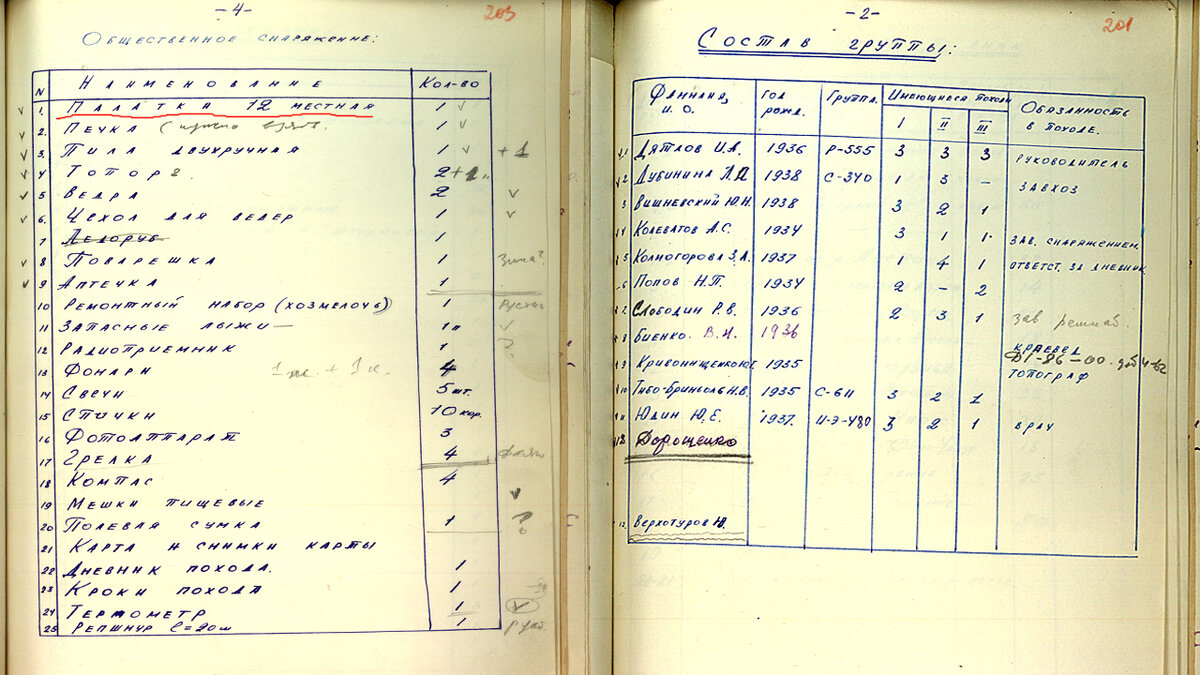 -4-
203
Общественное снаряжение:
N Наименование Кол-во
1. Палатка 12 местная 1
2. Печка 1
3. Пила двухручная 1 +1
4 Топор 2+1
5 Ведра 2
6. Чехол для ведер 1
7 Ледоруб 1
8 Поварешка 1 Зина?
9 Аптечка 1
10 Ремонтный набор (хозмелочь) 1
11 Запасные лыжи — 1п
12 Радиоприемник 1 ?
13 Фонари 4
14 Свечи 5 шт.
15 Спички 10 кор.
16 Фотоаппарат 3
17 Грелка 4
18 Компас 4
19 Мешки пищевые
20 Полевая сумка 1 ?
21 Карта и снимки карты
22 Дневник похода. 1
23 Кроки похода 1
24 Термометр 1
25 Репшнур 1
-2-
201
Состав группы:
Фамилия, И.О. Год рожд. Группа. Имеющиеся походы I II III Обязанность в походе.
1 Дятлов И.А. 1936 Р-555 3 3 3 руководитель
2 Дубинина Л.А 1938 С-340 1 3 – завхоз
3 Вишневский Ю.Н. 1938 3 2 1
4 Колеватов А.С. 1934 3 1 1. зав. снаряжением.
5 Колмогорова З.А. 1937 1 4 1 ответст. за дневник
6 Попов Н.П. 1934 2 – 2
7 Слободин Р.В. 1936 2 3 1
8 Биенко В.И. 1936
9 Кривонищенко 1935 топограф
10 Тибо-Бриньоль Н.В. 1935 С-611 3 2 1
11 Юдин Ю.Е. 1937 И-Э-480 3 2 1 врач
12 Дорошенко
12. Верхотуров Ю.